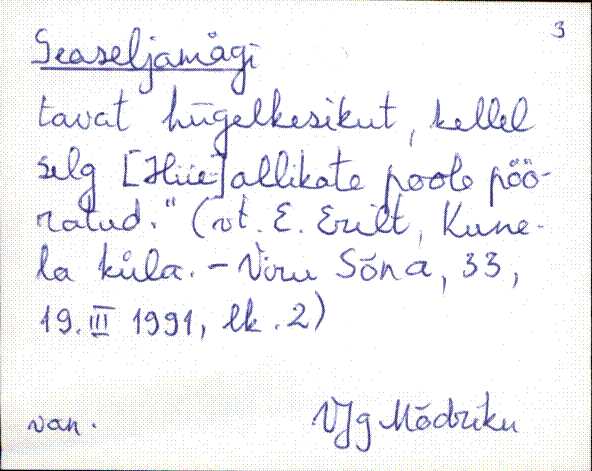 3
Seaseljamägi
tavat hügelkesikut, kellel
selg [Hiie]allikate poole pöö-
ratud." (vt. E. Erilt, Kune-
la küla. - Viru Sõna, 33,
19. III 1991, lk. 2)
van.
VJg Mõdriku